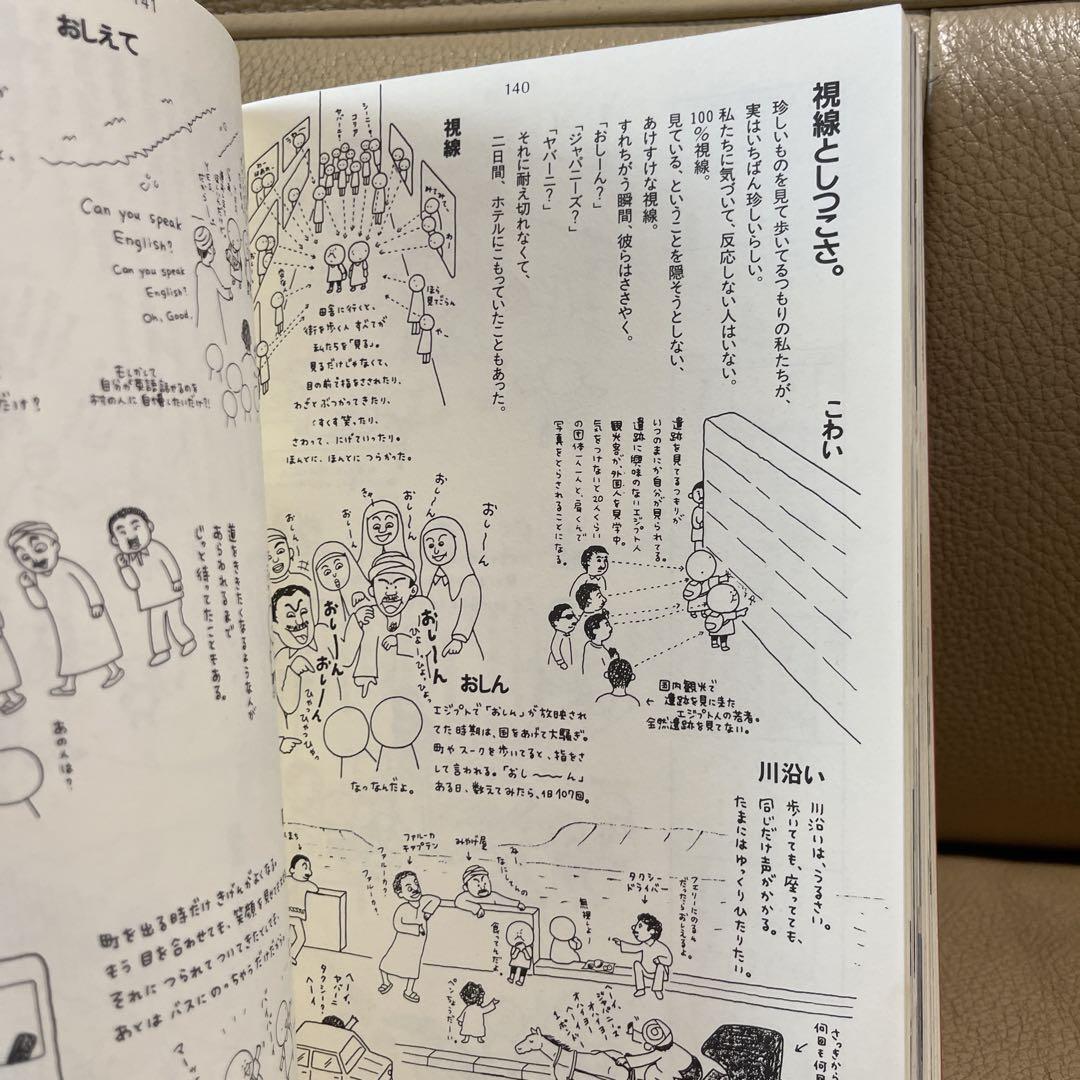 140
視線としつこさ。
珍しいものを見て歩いてるつもりの私たちが、
実はいちばん珍しいらしい。
私たちに気づいて、反応しない人はいない。
100％視線。
見ている、ということを隠そうとしない、
あけすけな視線。
すれちがう瞬間、彼らはささやく。
「おしーん？」
「ジャパニーズ？」
「ヤバーニ？」
それに耐え切れなくて、
二日間、ホテルにこもっていたこともあった。
視線
シーニー？
コリア
ヤバーニ
ほら
見てごらん
田舎に行くと、
街を歩く人 すべてが
私たちを「見る」。
見るだけじゃなくて、
目の前で指をさされたり、
わざとぶつかってきたり、
くすくす笑ったり、
さわって、にげていったり。
ほんとに、ほんとに つらかった。
こわい
遺跡を見てるつもりが
いつのまにか自分が見られてる。
遺跡に興味のないエジプト人
観光客が、外国人を見学中。
気をつけないと20人くらい
の団体一人一人と、肩くんで
写真をとらされることになる。
国内観光で
遺跡を見に来た
エジプト人の若者。
全然遺跡を見てない。
おし〜ん
おし〜ん
おし〜ん
おし〜ん
おし〜ん
おし〜ん
ひょーひょっひょっ
ひゃっひゃっひゃっ
なっなんだよ。
おしん
エジプトで「おしん」が放映され
てた時期は、国をあげて大騒ぎ。
町やスークを歩いてると、指をさ
して言われる。「おし〜〜〜ん」
ある日、数えてみたら、1日107回。
川沿い
川沿いは、うるさい。
歩いてても、座ってても、
同じだけ声がかかる。
たまにはゆっくりひたりたい。
ファルーカ
キャプテン
ファルーカ？
みやげ屋
なにしてんの
食ってんだよ。
無視しよ
タクシー
ドライバー
フェリーにのるん
だったらおしえるよ
ペンちょうだーい
ヘーイ、
ヤバーニ
タクシー？
ヘーイ、
ヘーイ、
ジャパニーズ
オハイヨー
オハイヨー
1ポンド
さっきから
141
おしえて
Can you speak
English?
Can you speak
English?
Oh, Good.
もしかして
自分が英語話せるのを
おすの人に自慢したいだけ?!
道をききたくなるようなんが
あらわれるまで
じっと待ってたこともある。
あの人は？
町を出る時だけ きげんがよくない
もう 目を合わせても、笑顔を見せても
それに つられて ついてきたとしても、
あとは バスにのっちゃうだけだから